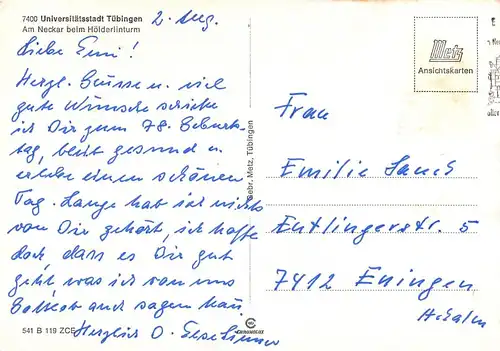 7400 Universitätsstadt Tübingen
Am Neckar beim Hölderlinturm
2. Aug.
Liebe Emi!
Herzl. Grüsse u. viel
gute Wünsche schicke
ich Dir zum 78. Geburts-
tag, bleib gesund u.
erlebe einen schönen
Tag. Lange hab ich nichts
von Dir gehört, ich hoffe
doch dass es Dir gut
geht was ich von uns
Gottlob auch sagen kann.
Herzlich O.
541 B 119 ZCE
Gebr. Metz, Tübingen
Metz
Ansichtskarten
Frau
Emilie
5
7412 Eningen